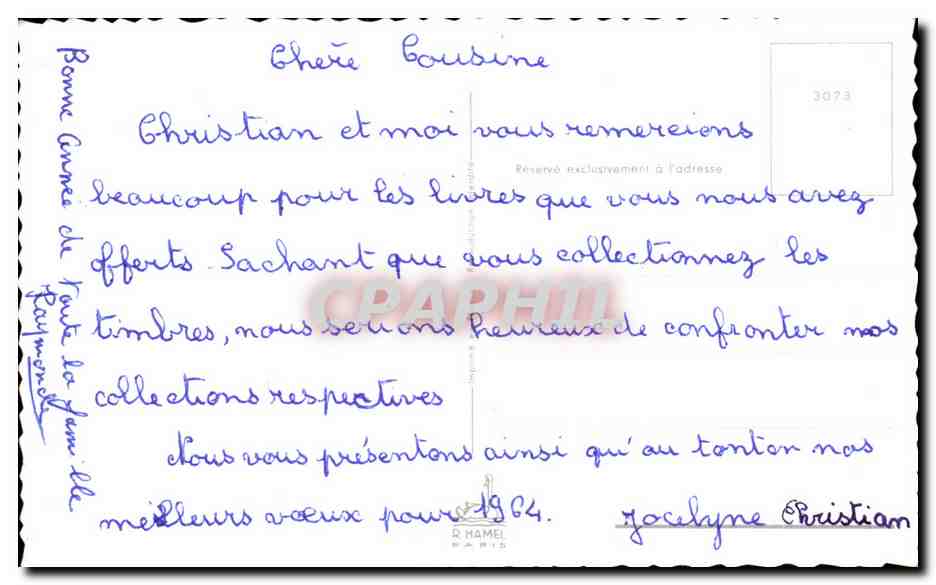 Chère Cousine
3073
Christian et moi vous remercions
Réservé exclusivement à l'adresse
beaucoup pour les livres que vous nous avez
offerts. Sachant que vous collectionnez les
CPAPHIL
timbres, nous serions heureux de confronter nos
collections respectives
Nous vous présentons ainsi qu'au tonton nos
meilleurs vœux pour 1964. Jocelyne Christian
R. HAMEL
PARIS
Bonne Année de toute la famille
Raymonde